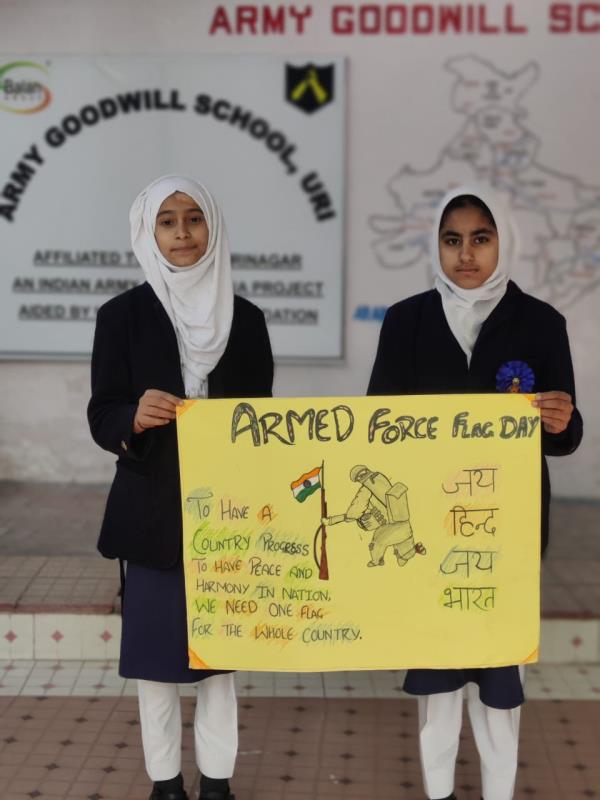 ARMY GOODWILL SC
Balan
ARMY GOODWILL SCHOOL, URI
AFFILIATED RINAGAR
AN INDIAN ARMY PROJECT
AIDED BY
ARMED FORCE FLAG DAY
TO HAVE A
COUNTRY PROGRESS
TO HAVE PEACE AND
HARMONY IN NATION.
WE NEED ONE FLAG
FOR THE WHOLE COUNTRY.
जय
हिन्द
जय
भारत